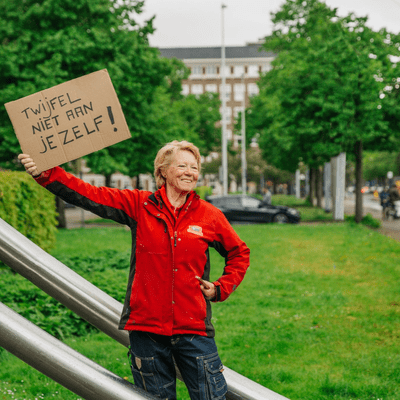 TWIJFEL
NIET AAN
JEZELF!